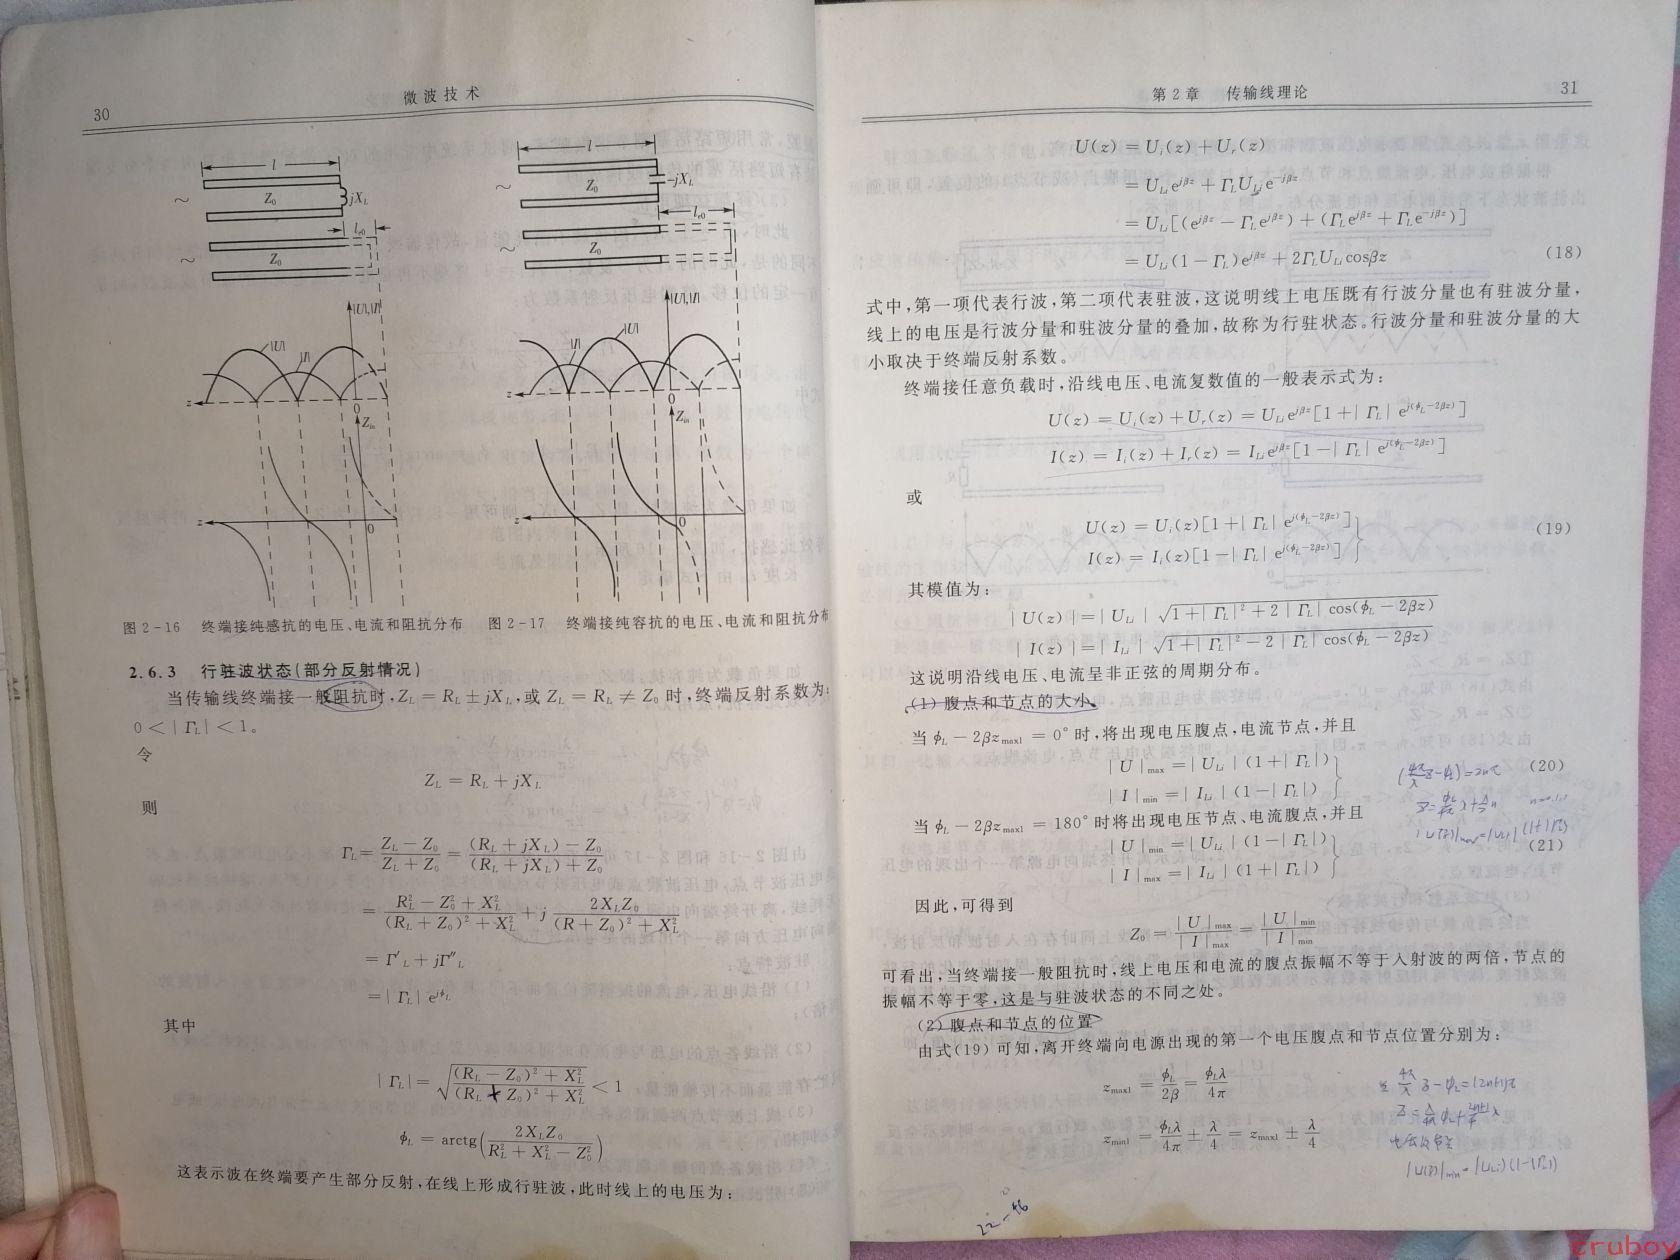 30
微波技术
l
Z₀
jX_L
~
l_e0
Z₀
~
|U|,|I|
|U|
|I|
z
0
Z_in
z
0
l
Z₀
-jX_L
~
l_e0
Z₀
~
|U|,|I|
|U|
|I|
z
0
Z_in
z
0
图2-16 终端接纯感抗的电压、电流和阻抗分布
图2-17 终端接纯容抗的电压、电流和阻抗分布
2.6.3 行驻波状态(部分反射情况)
当传输线终端接一般阻抗时,Z_L = R_L ± jX_L,或 Z_L = R_L ≠ Z₀ 时,终端反射系数为:
0 < |Γ_L| < 1。
令
Z_L = R_L + jX_L
则
Γ_L = (Z_L − Z₀)/(Z_L + Z₀) = ((R_L + jX_L) − Z₀)/((R_L + jX_L) + Z₀)
= (R_L² − Z₀² + X_L²)/((R_L + Z₀)² + X_L²) + j 2X_LZ₀/((R + Z₀)² + X_L²)
= Γ′_L + jΓ″_L
= |Γ_L| e^{jϕ_L}
其中
|Γ_L| = √(((R_L − Z₀)² + X_L²)/((R_L + Z₀)² + X_L²)) < 1
ϕ_L = arctg(2X_LZ₀/(R_L² + X_L² − Z₀²))
这表示波在终端要产生部分反射,在线上形成行驻波,此时线上的电压为:
第2章 传输线理论
31
U(z) = U_i(z) + U_r(z)
= U_Li e^{jβz} + Γ_L U_Li e^{−jβz}
= U_Li[(e^{jβz} − Γ_L e^{jβz}) + (Γ_L e^{jβz} + Γ_L e^{−jβz})]
= U_Li(1 − Γ_L)e^{jβz} + 2Γ_L U_Li cosβz (18)
式中,第一项代表行波,第二项代表驻波,这说明线上电压既有行波分量也有驻波分量,
线上的电压是行波分量和驻波分量的叠加,故称为行驻状态。行波分量和驻波分量的大
小取决于终端反射系数。
终端接任意负载时,沿线电压、电流复数值的一般表示式为:
U(z) = U_i(z) + U_r(z) = U_Li e^{jβz}[1 + |Γ_L| e^{j(ϕ_L−2βz)}]
I(z) = I_i(z) + I_r(z) = I_Li e^{jβz}[1 − |Γ_L| e^{j(ϕ_L−2βz)}]
或
U(z) = U_i(z)[1 + |Γ_L| e^{j(ϕ_L−2βz)}]
I(z) = I_i(z)[1 − |Γ_L| e^{j(ϕ_L−2βz)}] (19)
其模值为:
|U(z)| = |U_Li| √(1 + |Γ_L|² + 2|Γ_L| cos(ϕ_L − 2βz))
|I(z)| = |I_Li| √(1 + |Γ_L|² − 2|Γ_L| cos(ϕ_L − 2βz))
这说明沿线电压、电流呈非正弦的周期分布。
(1) 腹点和节点的大小
当 ϕ_L − 2βz_max1 = 0° 时,将出现电压腹点,电流节点,并且
|U|_max = |U_Li|(1 + |Γ_L|)
|I|_min = |I_Li|(1 − |Γ_L|) (20)
当 ϕ_L − 2βz_max1 = 180° 时将出现电压节点、电流腹点,并且
|U|_min = |U_Li|(1 − |Γ_L|)
|I|_max = |I_Li|(1 + |Γ_L|) (21)
因此,可得到
Z₀ = |U|_max/|I|_max = |U|_min/|I|_min
可看出,当终端接一般阻抗时,线上电压和电流的腹点振幅不等于入射波的两倍,节点的
振幅不等于零,这是与驻波状态的不同之处。
(2) 腹点和节点的位置
由式(19) 可知,离开终端向电源出现的第一个电压腹点和节点位置分别为:
z_max1 = ϕ_L/2β = ϕ_Lλ/4π
z_min1 = ϕ_Lλ/4π ± λ/4 = z_max1 ± λ/4
22-46
cruboy